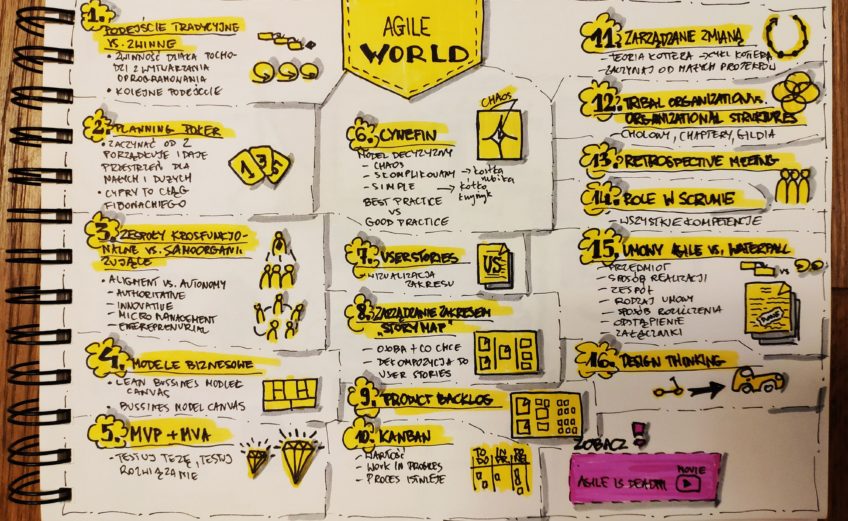 AGILE
WORLD
1. PODEJŚCIE TRADYCYJNE
VS. ZWINNE
• ZWINNOŚĆ DZIAŁA POCHO-
DZI Z WYTWARZANIA
OPROGRAMOWANIA
• KOLEJNE PODEJŚCIE
2. PLANNING POKER
• ZACZYNAĆ OD 2
PORZĄDKUJE I DAJE
PRZESTRZEŃ DLA
MAŁYCH I DUŻYCH
• CYFRY TO CIĄG
FIBONACHIEGO
1 3 5
3. ZESPOŁY KROSFUNKCJO-
NALNE VS. SAMOORGANI-
ZUJĄCE
• ALIGMENT VS. AUTONOMY
- AUTHORITATIVE
- INNOVATIVE
- MICRO MANAGMENT
- ENTEREPRENURIAL
4. MODELE BIZNESOWE
• LEAN BUSSINES MODLEL
CANVAS
• BUSSINES MODEL CANVAS
5. MVP + MVA
- TESTUJ TEZĘ, TESTUJ
ROZWIĄZANIE
6. CYNEFIN
CHAOS
MODEL DECYZYJNY
- CHAOS
- SKOMPLIKOWANY → KOSTKA
RUBIKA
- SIMPLE → KÓŁKO
KRZYŻYK
BEST PRACTICE
VS
GOOD PRACTICE
7. USER STORIES
WIZUALIZACJA
ZAKRESU
US
8. ZARZĄDZANIE ZAKRESEM
"STORY MAP"
- OSOBA + CO CHCE
- DEKOMPOZYCJA TO
USER STORIES
9. PRODUCT BACKLOG
10. KANBAN
- WARTOŚĆ
- WORK IN PROGRES
- PROCES ISTNIEJE
TO DO
IN PR
11. ZARZĄDZANIE ZMIANĄ
- TEORIA KOTTERA → CYKL KOTTERA
ZACZYNAJ OD MAŁYCH PROJEKTÓW
12. TRIBAL ORGANIZATION VS.
ORGANIZATIONAL STRUKTURES
- CHOLOWY, CHAPTERY, GILDIA
13. RETROSPECTIVE MEEING
14. ROLE W SCRUMIE
- WSZYSTKIE KOMPETENCJE
15. UMOWY AGILE VS. WATERFALL
- PRZEDMIOT
- SPOSÓB REALIZACJI
- ZESPÓŁ
- RODZAJ UMOWY
- SPOSÓB ROZLICZENIA
- ODSTĄPIENIE
- ZAŁĄCZNIKI
VS
16. DESIGN THINKING
ZOBACZ!
AGILE IS DEAD!!!
MOVIE